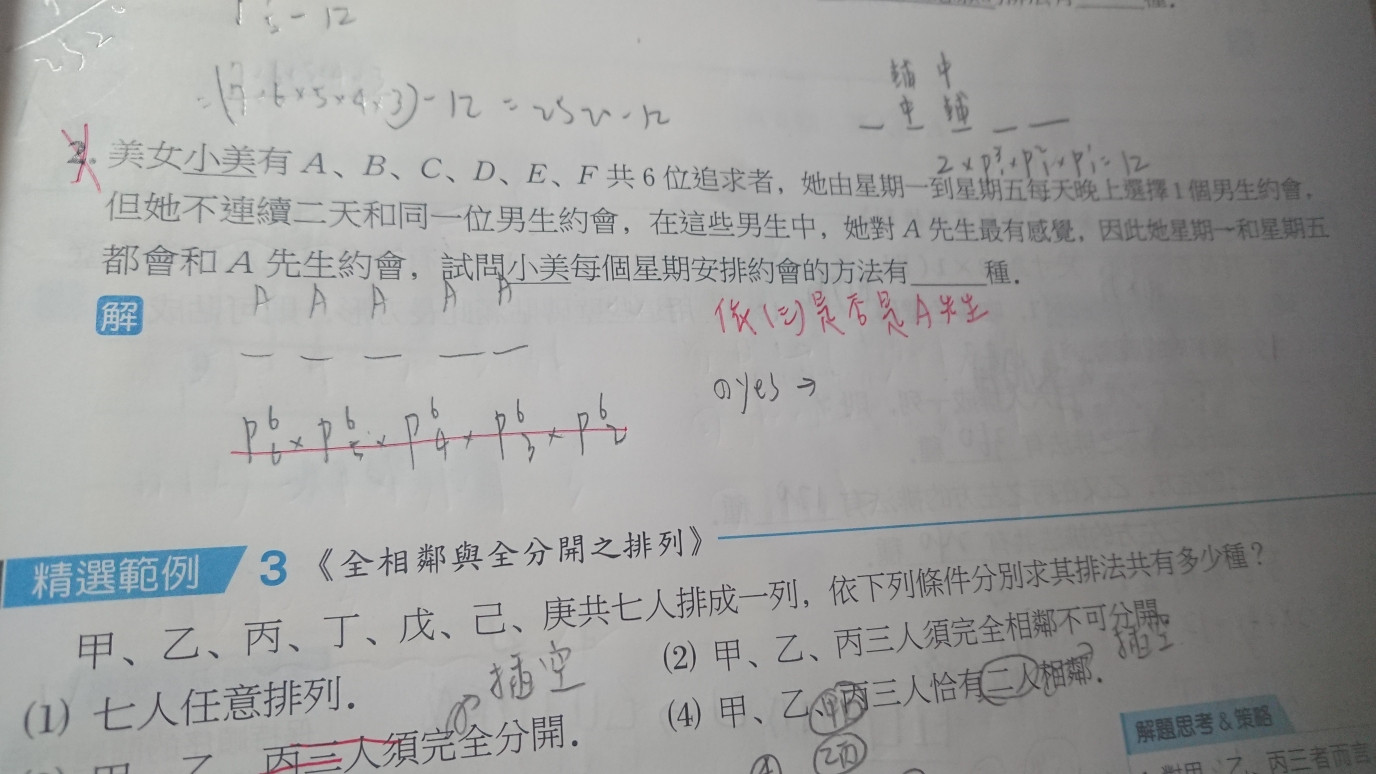 - 12
= (7×6×5×4×3) - 12 = 252 - 12
輔 中
中 輔
2×P³₁×P²₁×P¹₁=12
2. 美女小美有 A、B、C、D、E、F 共 6 位追求者，她由星期一到星期五每天晚上選擇1個男生約會，
但她不連續二天和同一位男生約會，在這些男生中，她對 A 先生最有感覺，因此她星期一和星期五
都會和 A 先生約會，試問小美每個星期安排約會的方法有_____種．
A A A A A
依(三)是否是A先生
解
yes →
P⁶₆×P⁶₅×P⁶₄×P⁶₃×P⁶₂
精選範例 3 《全相鄰與全分開之排列》
甲、乙、丙、丁、戊、己、庚共七人排成一列，依下列條件分別求其排法共有多少種？
(1) 七人任意排列．
插空
(2) 甲、乙、丙三人須完全相鄰不可分開
插空
丙三人須完全分開．
(4) 甲、乙、丙三人恰有二人相鄰．
甲丙
乙丙
解題思考&策略
對甲、乙、丙三者而言